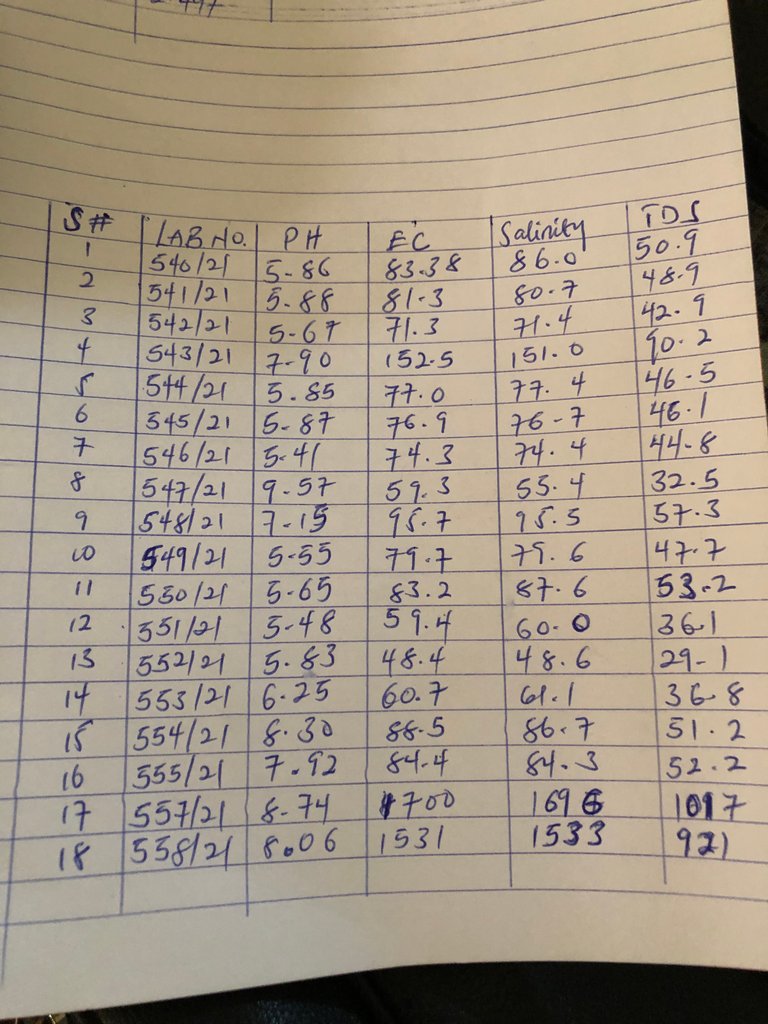 2.497
S# LAB NO. PH EC Salinity TDS
1 540/21 5-86 83.38 86.0 50.9
2 541/21 5.88 81.3 80.7 48.9
3 542/21 5-67 71.3 71.4 42.9
4 543/21 7-90 152.5 151.0 90.2
5 544/21 5.85 77.0 77.4 46-5
6 545/21 5-87 76.9 76-7 46.1
7 546/21 5-41 74.3 74.4 44-8
8 547/21 9-57 59.3 55.4 32.5
9 548/21 7-15 95.7 95.5 57.3
10 549/21 5-55 79.7 79.6 47.7
11 550/21 5-65 83.2 87.6 53.2
12 551/21 5-48 59.4 60.0 36.1
13 552/21 5.83 48.4 48.6 29-1
14 553/21 6-25 60.7 61.1 36.8
15 554/21 8.30 88.5 86.7 51.2
16 555/21 7.92 84.4 84.3 52.2
17 557/21 8-74 1700 1696 1017
18 558/21 8.06 1531 1533 921